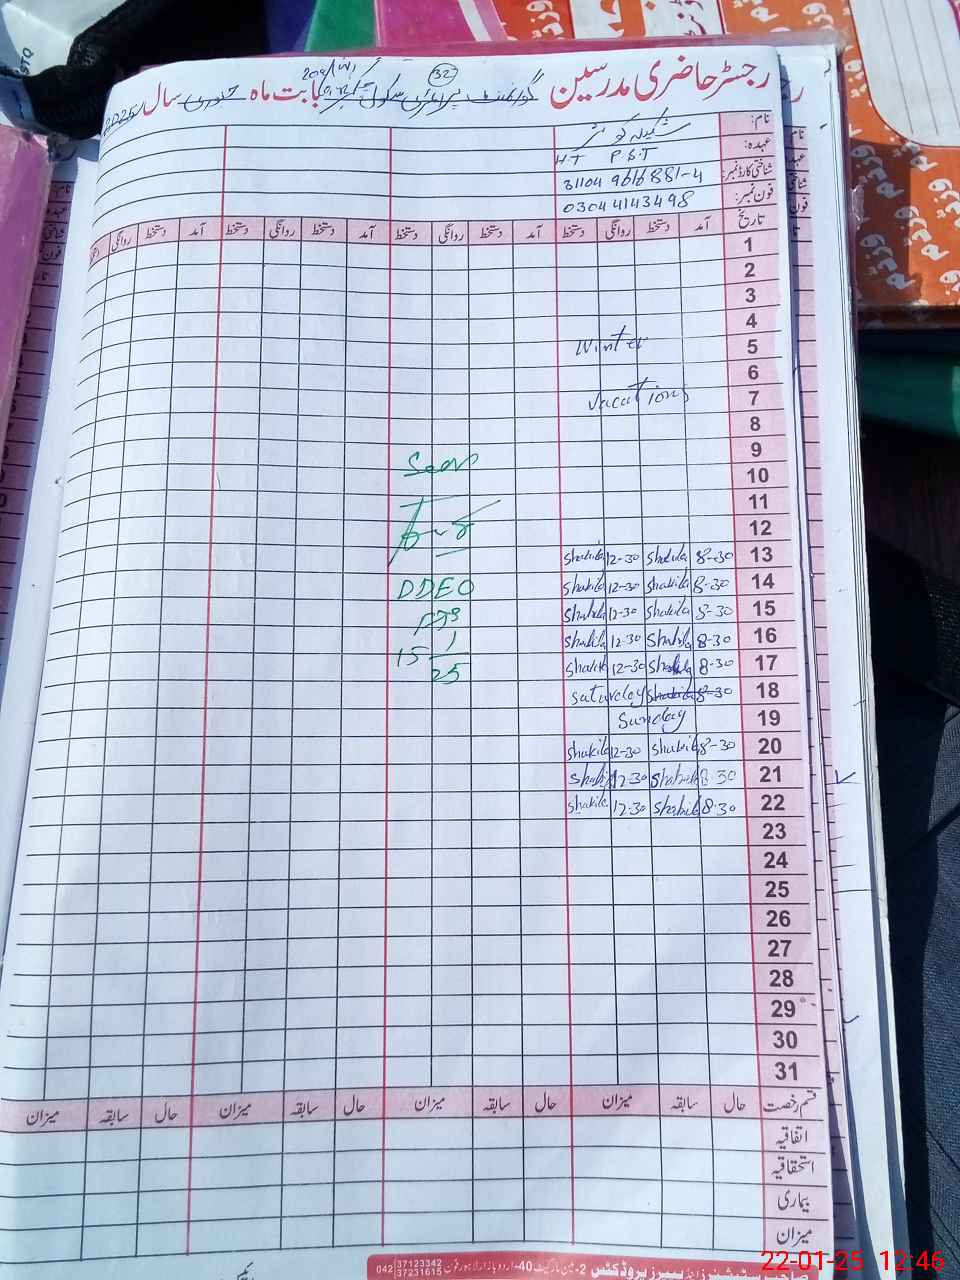 رجسٹر حاضری مدرسین گورنمنٹ پرائمری سکول بابت ماہ جنوری سال 2025
32
نام: شکیلہ کوثر
عہدہ: H.T P.S.T
شناختی کارڈ نمبر: 31104 9616881-4
فون نمبر: 03044143498
تاریخ آمد دستخط روانگی دستخط آمد دستخط روانگی دستخط آمد دستخط روانگی دستخط آمد دستخط روانگی
1
2
3
4
5 Winter
6
7 Vacations
8
9 Seen
10
11
12
13 8-30 Shakila 12-30 Shakila
14 8-30 Shakila 12-30 Shakila DDEO
15 8-30 Shakila 12-30 Shakila
16 8-30 Shakila 12-30 Shakila 15 1
17 8-30 Shakila 12-30 Shakila 25
18 8-30 Shakila Saturday
19 Sunday
20 8-30 Shakila 12-30 Shakila
21 8-30 Shakila 12-30 Shakila
22 8-30 Shakila 12-30 Shakila
23
24
25
26
27
28
29
30
31
قسم رخصت حال سابقہ میزان حال سابقہ میزان حال سابقہ میزان حال سابقہ میزان
اتفاقیہ
استحقاقیہ
بیماری
میزان
2-مین مارکیٹ 40-اردو بازار لاہور فون 042 37123342 37231615
22-01-25 12:46